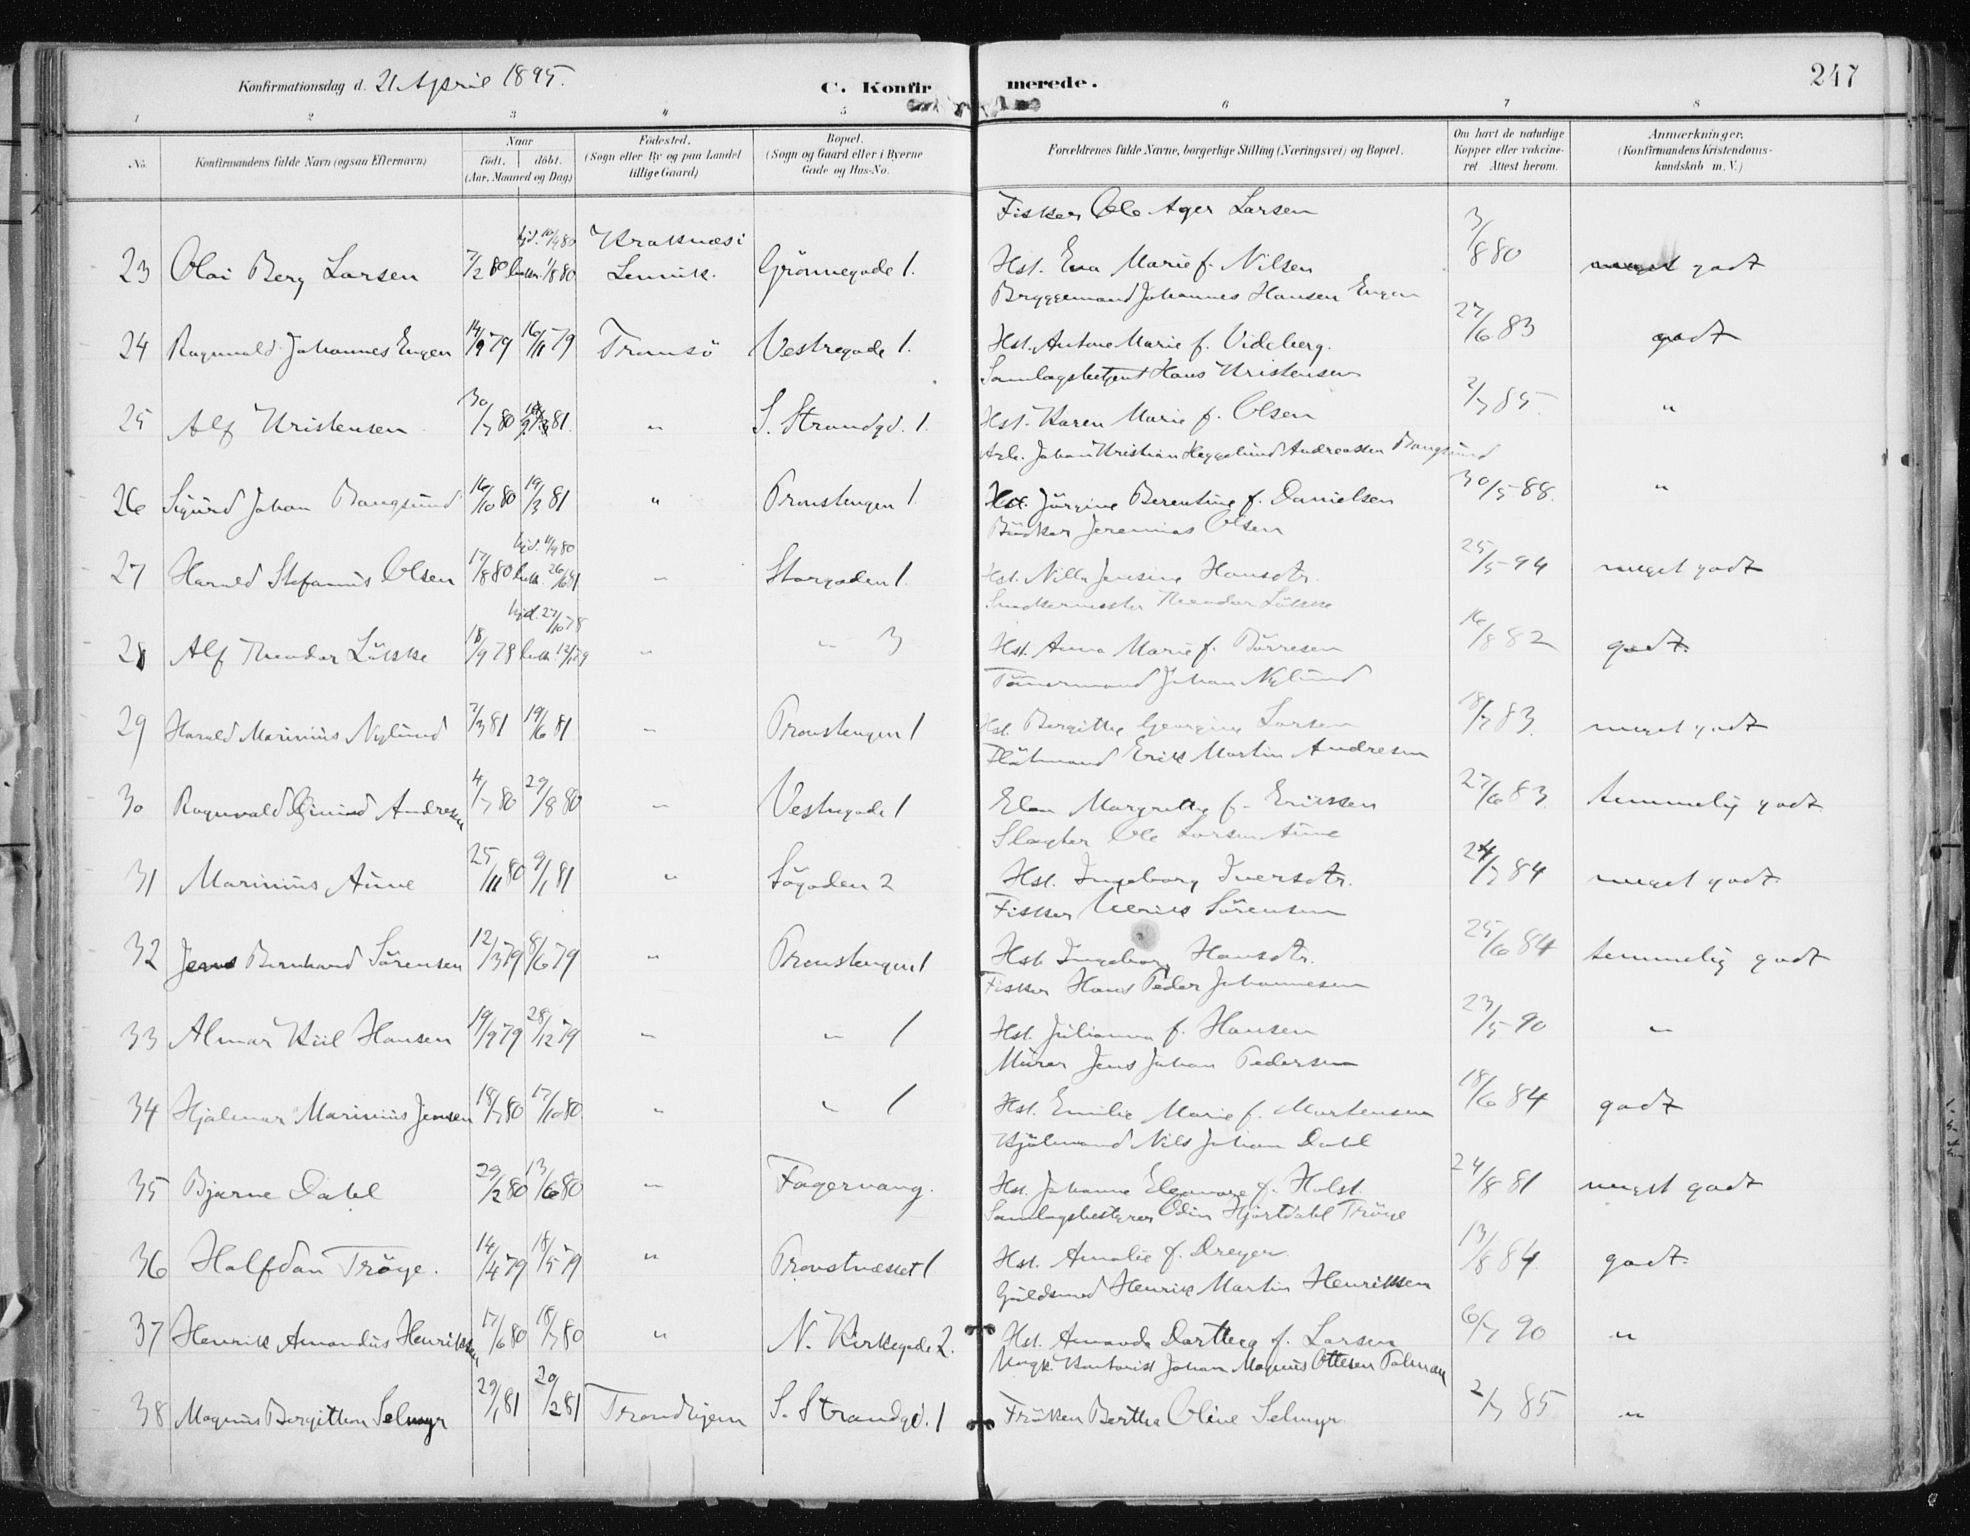 Konfirmationsdag d. 21 April 1895.
C. Konfirmerede.
247
1 2 3 4 5 6 7 8
No.
Konfirmandens fulde Navn (ogsaa Efternavn)
Naar
født. døbt.
(Aar, Maaned og Dag)
Fødested.
(Sogn eller By og paa Landet
tillige Gaard)
Bopæl.
(Sogn og Gaard eller i Byerne
Gade og Hus-No.
Forældrenes fulde Navne, borgerlige Stilling (Næringsvei) og Bopæl.
Om havt de naturlige
Kopper eller vakcine-
ret. Attest herom.
Anmærkninger.
(Konfirmandens Kristendoms-
kundskab m. V.)
Fisker Ole Ager Larsen
23 Olai Berg Larsen 7/2 80 hjd. 10/4 80 bekr. 1/8 80 Kraknæs i Lenvik. Grönnegade 1. Hst. Eva Marie f. Nilsen 3/8 80 meget godt
Bryggemand Johannes Hansen Engen
24 Ragnvald Johannes Engen 14/9 79 16/11 79 Tromsö Vestregade 1. Hst. Antone Marie f. Videberg. 27/6 83 godt
Samlagsbetjent Hans Kristensen
25 Alf Kristensen 30/7 80 81. " S. Strandgd. 1. Hst. Karen Marie f. Olsen 2/7 85. "
Arb. Johan Kristian Heggelund Andreassen Bangsund
26 Sigurd Johan Bangsund 16/10 80 19/3 81 " Provstengen 1. Hst. Jörgine Berentine f. Danielsen 30/5 88. "
Bödker Jeremias Olsen
27 Harald Stefanus Olsen 17/8 80 hjd. 11/9 80 bekr. 26/6 81 " Storgaden 1. Hst. Nille Jensine Hansdtr. 25/5 94 meget godt
Snedkermester Theodor Lökke
28 Alf Theodor Lökke 18/9 78 hjd. 27/10 78 " " 3 Hst. Anna Marie f. Börresen 16/8 82 godt.
Tömmermand Johan Nylund
29 Harald Marinius Nylund 7/3 81 19/6 81 " Provstengen 1 Hst. Bergitte Georgine Larsen 18/7 83. meget godt
Erik Martin Andresen
30 Ragnvald Andresen 4/7 80 29/8 80 " Vestregade 1 Elen Margrethe f. Eriksen 27/6 83 temmelig godt
Slagter Ole Larsen Aune
31 Marinius Aune 25/11 80 9/1 81 " Sögaden 2 Hst. Ingeborg Iversdtr. 24/7 84 meget godt
Fisker Ulrik Sörensen
32 Jens Bernhard Sörensen 12/3 79 8/6 79 " Provstengen 1 Hst. Ingeborg Hansdtr. 25/6 84 temmelig godt
Fisker Hans Peder Johannesen
33 Almar Kiil Hansen 19/9 79 28/12 79 " " 1 Hst. Julianna f. Hansen 23/5 90 "
Murer Jens Johan Pedersen
34 Hjalmar Marinius Jensen 18/7 80 17/10 80 " " 1 Hst. Emilie Marie f. Mortensen 18/6 84 godt
Kjölmand Nils Johan Dahl
35 Bjarne Dahl 29/2 80 13/6 80 " Fagervang. Hst. Johanna Eleonore f. Holst. 24/8 81 meget godt
Samlagsbestyrer Odin Hjortdahl Tröye
36 Halfdan Tröye. 14/4 79 18/5 79 " Provstnæsset 1 Hst. Amalie f. Dreyer. 13/8 84. godt.
Guldsmed Henrik Martin Henriksen
37 Henrik Amandus Henriksen 17/6 80 18/7 80 " N. Kirkegade 2. Hst. Amanda Dorthea f. Larsen 6/7 90 "
Ungk. Kontorist Johan Magnus Ottesen
38 Magnus Bergithon Selmyr 29/1 81 20/2 81 Trondhjem S. Strandgd. 1 Fröken Bertha Oline Selmyr. 2/7 85 "